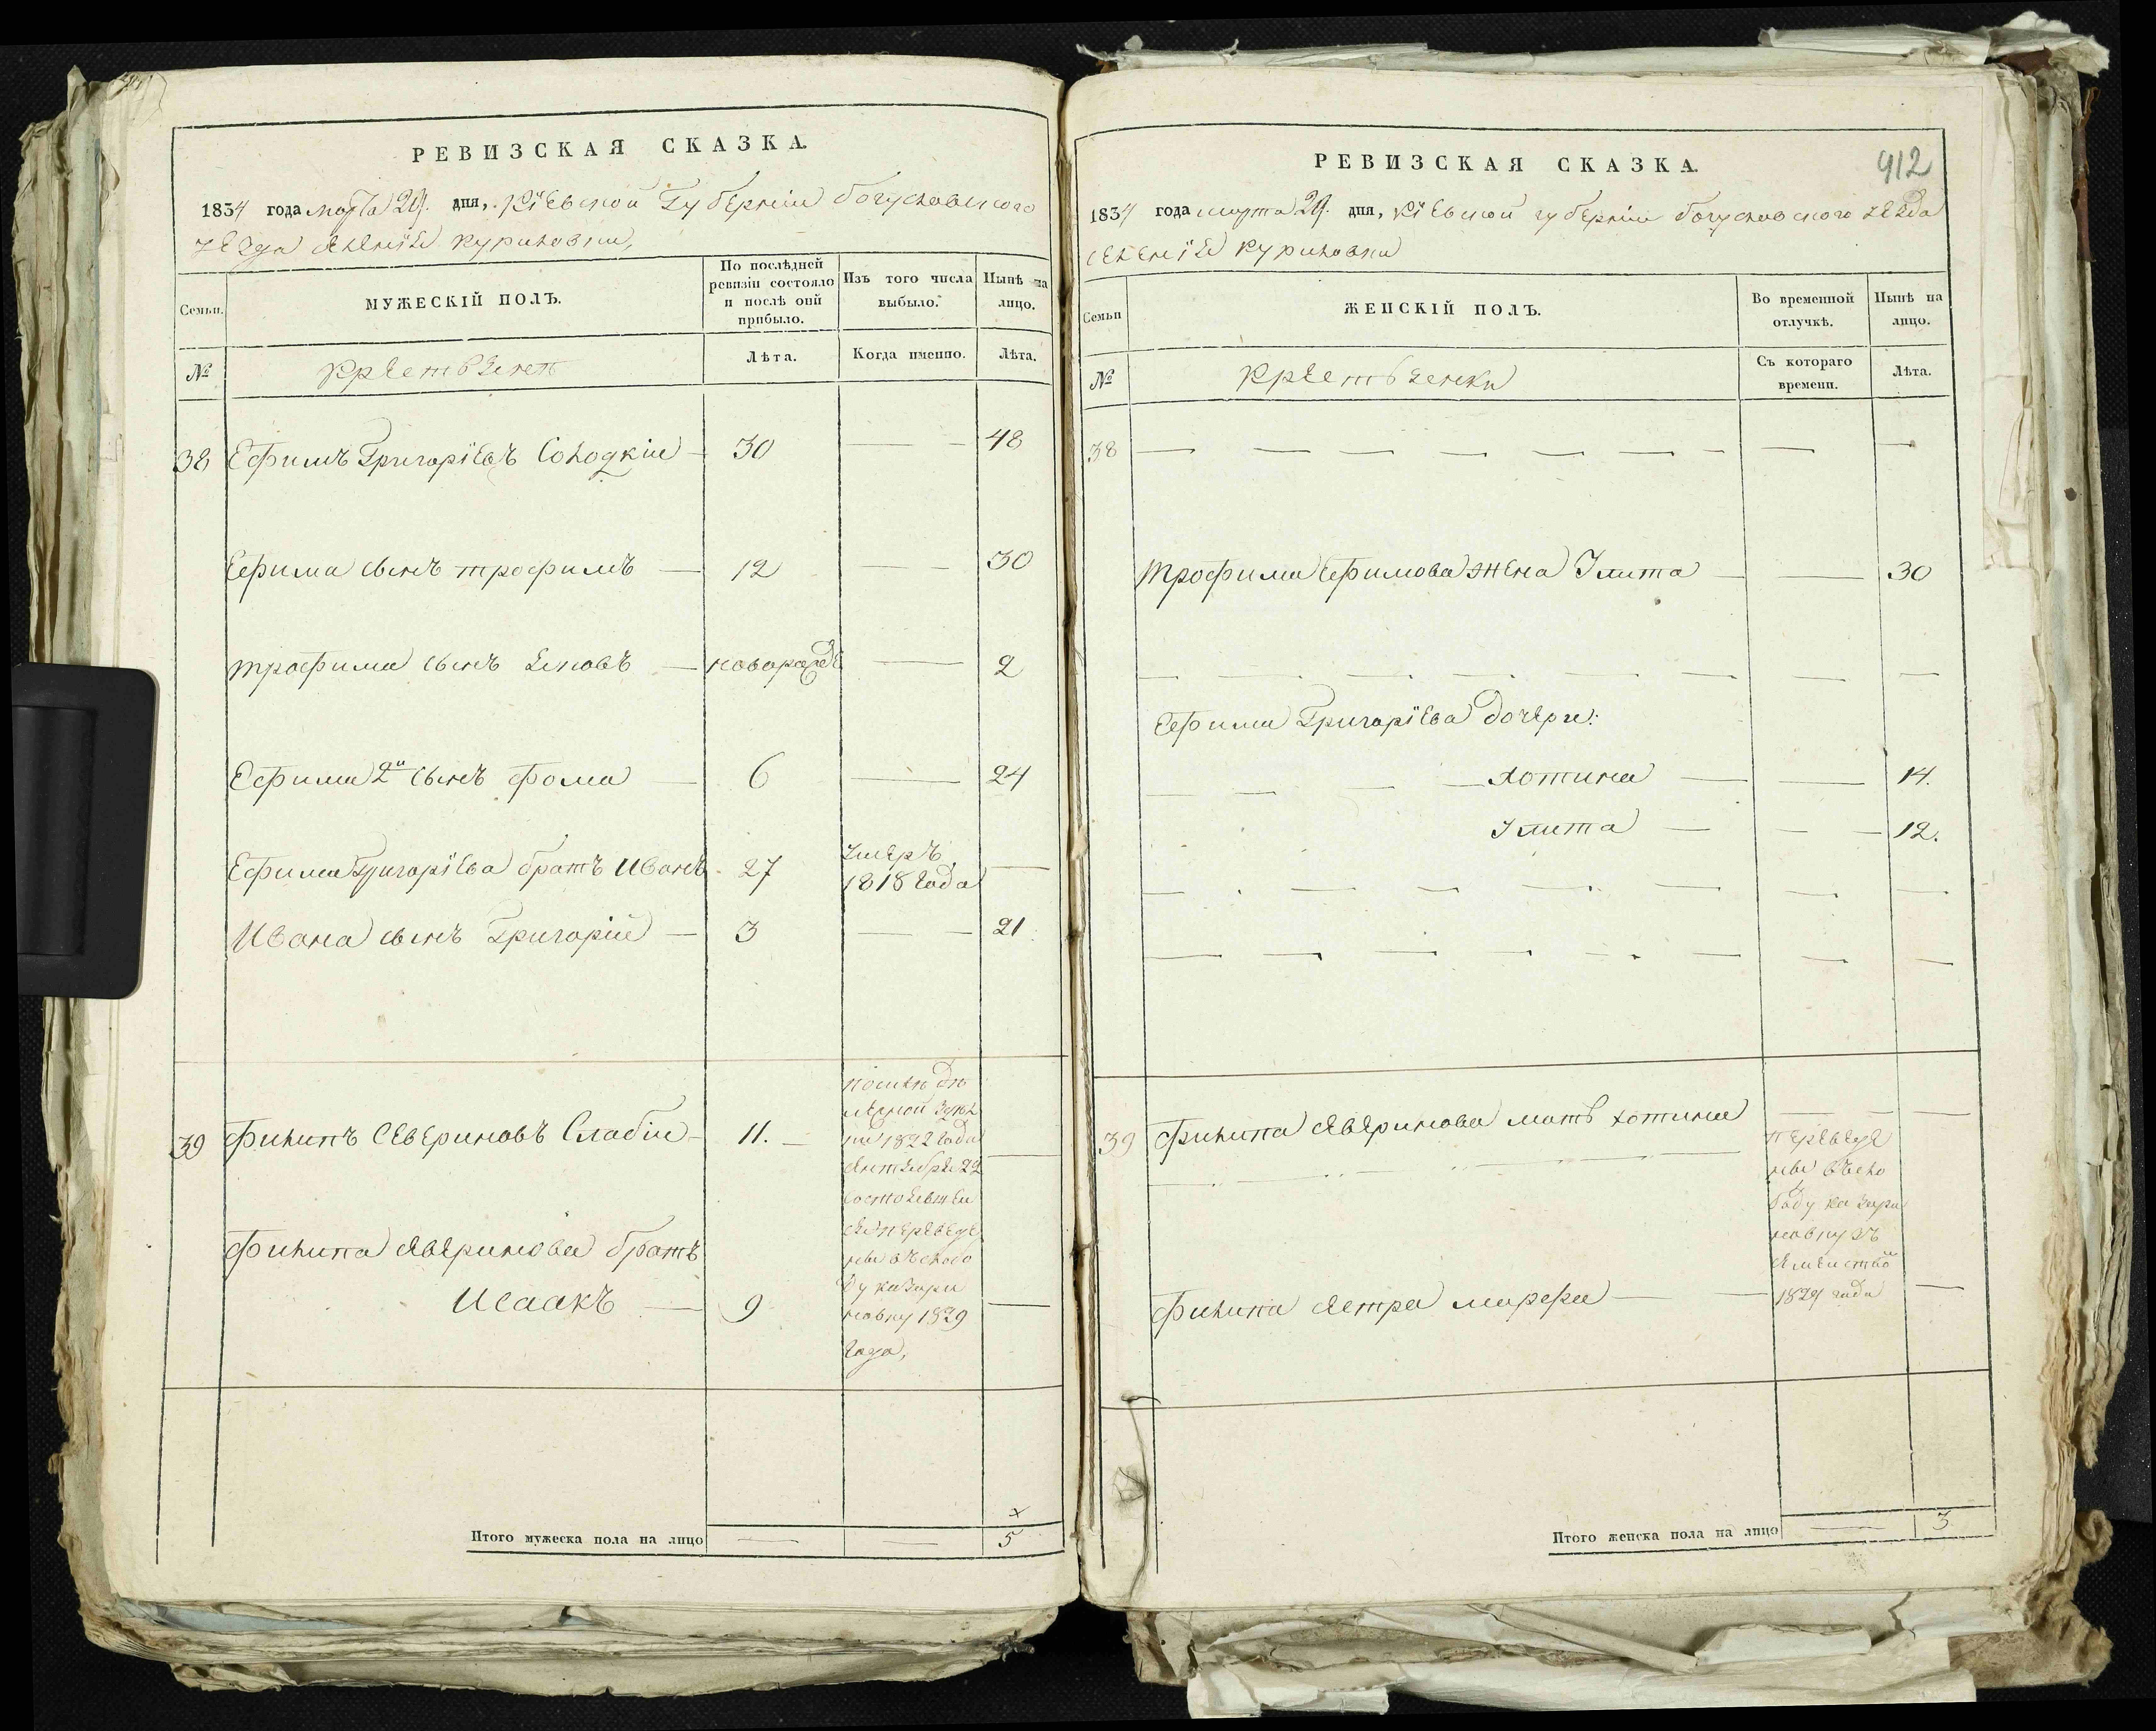 РЕВИЗСКАЯ СКАЗКА.
1834 года марта 29. дня, Кіевской Губерніи богуславского
уезда селеніе Куриловки,
Семьи.
МУЖЕСКІЙ ПОЛЪ.
По послѣдней ревизіи состояло и послѣ оній прибыло.
Изъ того числа выбыло.
Нынѣ на лицо.
№
Крестьяне
Лѣта.
Когда именно.
Лѣта.
38 Ефимъ Григоріевъ Солодкій 30 — — 48
Ефима сынъ трофимъ — 12 — — 30
трофима сынъ яковъ — новорожде — 2
Ефима 2й сынъ фома — 6 — 24
Ефима Григоріева братъ Иванъ 27 умеръ 1818 года —
Ивана сынъ Григорій — 3 — — 21
39 Филипъ Севериновъ Слабій — 11. —
1822 года
сентебре 22
переведе
ны въ слобо
ду
1829
года,
Филипа Северинова братъ
Исаакъ — 9 —
Итого мужеска пола на лицо — — 5
РЕВИЗСКАЯ СКАЗКА.
912
1834 года марта 29. дня, Кіевской губерніи богуславского уезда
селеніе Куриловки
Семьи
ЖЕНСКІЙ ПОЛЪ.
Во временной отлучкѣ.
Нынѣ на лицо.
№
Крестьянки
Съ котораго времени.
Лѣта.
38 — — — — — — — — —
трофима Ефимова жена Улита — — 30
Ефима Григоріева дочери:
— — — — хотина — — 14.
Улита — — — 12.
39 Филипа Северинова мать хотина — — —
переведе
ны въ сло
боду
1829 года
Филипа сестра марфа — — —
Итого женска пола на лицо — 3